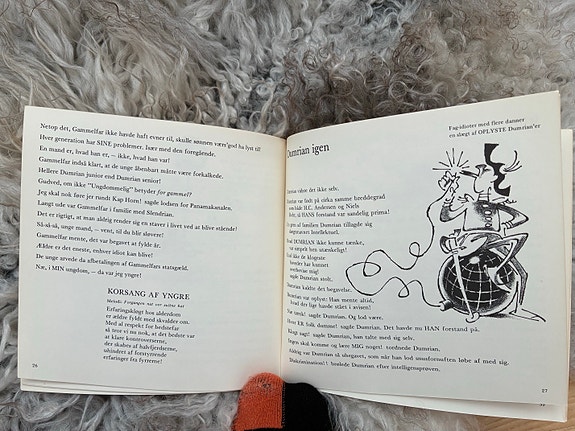 Netop det, Gammelfar ikke havde haft evner til, skulle sønnen værn'god ha lyst til
Hver generation har SINE problemer, lånt med den foregående.
En mand er, hvad han er, — ikke, hvad han var!
Gammelfar indså klart, at de unge åbenbart måtte være forkalkede.
Hellere Dumrian junior end Dumrian senior!
Gudved, om ikke "Ungdommelig" betyder for gammel?
Jeg skal nok føre jer rundt Kap Horn! sagde lodsen for Panamakanalen.
Langt ude var Gammelfar i familie med Slendrian.
Det er rigtigt, at man aldrig render sig en staver i livet ved at blive stående!
Så-så-så, unge mand, — vent, til du blir sløvere!
Gammelfar mente, det var begavet at fylde år.
Ældre er det eneste, enhver idiot kan blive!
De unge arvede da afbetalingen af Gammelfars statsgæld.
Næ, i MIN ungdom, — da var jeg yngre!
KORSANG AF YNGRE
Erfaringsklogt hos alderdom
er ældre fyldt med skvalder om.
Med al respekt for bedstefar
så tror vi nok, at det bedste var
at klare kontroverserne,
der skabes af halvfjerdserne,
uhindret af forstyrrende
erfaring fra fyrrerne!
26
Fag-idioter med flere danner
en slægt af OPLYSTE Dumrian'er
Dumrian igen
vidste det ikke selv.
var født på cirka samme breddegrad
som både H.C. Andersen og Niels
Bohr, så HANS forstand var sandelig prima!
gren af familien Dumrian tillagde sig
intellektuel.
DUMRIAN ikke kunne tænke,
var simpelt hen utænkeligt!
de klogeste
høveder har kunnet
mig!
sagde Dumrian stolt.
Dumrian kaldte det begavelse.
Dumrian var oplyst: Han mente altid,
hvad der lige havde stået i avisen!
sagde Dumrian. Og lod være.
ER folk dumme! sagde Dumrian. Det havde nu HAN forstand på.
sagt! sagde Dumrian, han talte med sig selv.
Ingen skal komme og lære MIG noget! tordnede Dumrian.
Aldrig var Dumrian så ubegavet, som når han lod snusfornuften løbe af med sig.
Diskrimination! brølede Dumrian efter intelligensprøven.
27